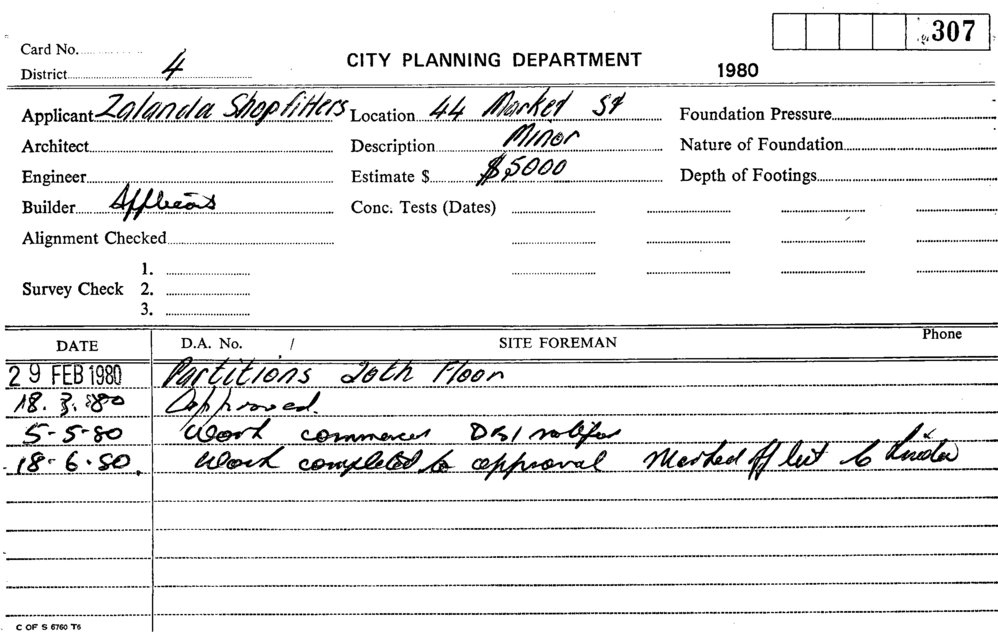 307
Card No.
District 4
CITY PLANNING DEPARTMENT
1980
Applicant Zalanda Shopfitters Location 44 Market St Foundation Pressure
Architect Description Minor Nature of Foundation
Engineer Estimate $ $5000 Depth of Footings
Builder Conc. Tests (Dates)
Alignment Checked
1.
Survey Check 2.
3.
DATE D.A. No. / SITE FOREMAN Phone
29 FEB 1980 Partitions 20th Floor
18.3.80 Approved.
5-5-80 Work commenced
18-6-80. Work completed to approval Marked off
C OF S 6760 T6